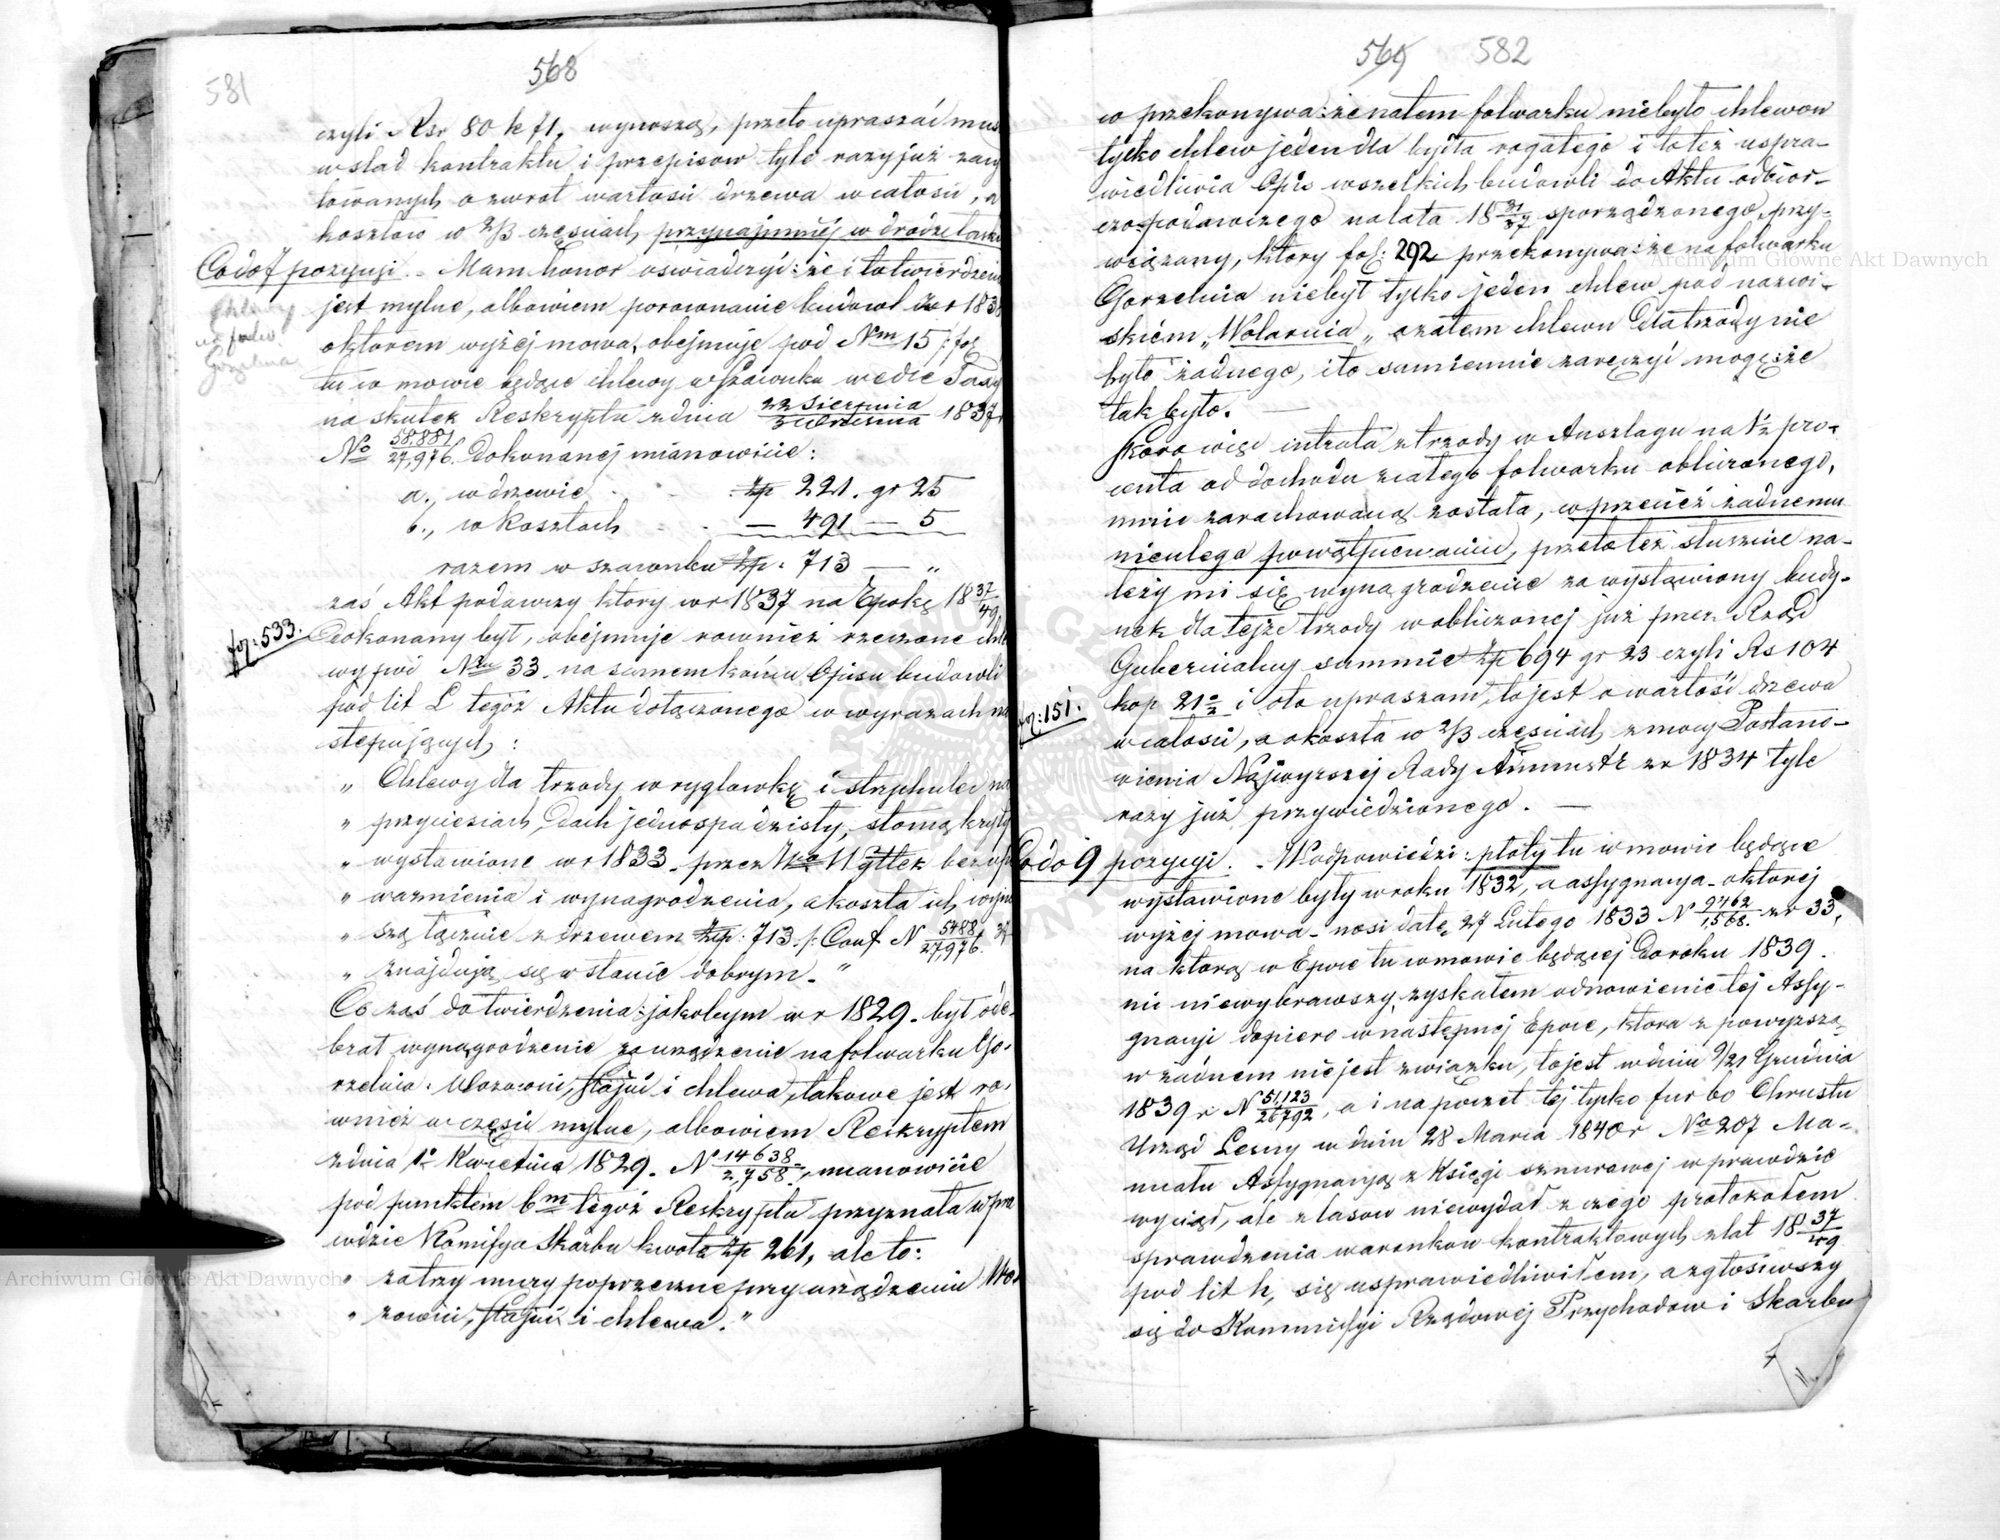 581
568
czyli Rsr 80 k 71, wynoszą, przeto upraszać
w ślad kontraktu i przepisow tyle razy już
towanych o zwrot wartości drzewa w całości, a
kosztów w 2/3 częściach, przynajmniéj w drodze
Co do 7 pozycyi. - Mam honor oswiadczyć: że i to twierdzenie
na folw.
Gorzelnia
jest mylne, albowiem porównanie budowl z r 183
o ktorem wyżej mowa, obejmuje pod Nrm 15
tu w mowie będące chlewy w Szacunku wedle Taxy
na skutek Reskryptu z dnia 22 Sierpnia / 3 Września 1837 r
No 58,881/27,976. dokonanej mianowicie:
a., w drzewie . . Zp 221. gr 25
b., w kosztach . . — 491 — 5
razem w szacunku Zp. 713 — „
zaś Akt podawczy ktory w r 1837 na Epokę 18 37/49
fol: 533.
dokonany był, obejmuje rownież rzeczone
wy pod Nrm 33. na samem końcu Opisu budowli
pod lit L tegoż Aktu dołączonego w wyrazach
stępujących:
„ Chlewy dla trzody w ryglowkę i sztychulec
„ przyciesiach, Dach jednospadzisty, słomą kryty
„ wystawione w r 1833. przez
„ ważnienia i wynagrodzenia, a koszta ich
„ szą łącznie z drzewem Zp: 713 /: Conf N
„ znajdują się w stanie dobrym. „
Co zaś do twierdzenia: jakobym w r 1829. był ode-
brał wynagrodzenie za urządzenie na folwarku Go-
rzelnia: Wozowni, stajni i chlewa, takowe jest ro-
wnież w części mylne, albowiem Reskryptem
z dnia 1o Kwietnia 1829. N 14638/2,758., mianowicie
pod punktem 6m tegoż Reskryptu przyznała wpra
wdzie Kommisya Skarbu kwotę Zp 261, ale to:
„ za trzy mury poprzeczne przy urządzeniu Wo
„ zowni, stajni i chlewa. „
569
582
co przekonywa: że na tem folwarku niebyło chlewow
tylko chlew jeden dla bydła rogatego i toteż uspra-
wiedliwia Opis wszelkich budowli do Aktu odbior-
czo-podawczego na lata 18 31/37 sporządzonego, przy-
wiązany, ktory fol: 292 przekonywa: że na folwarku
Gorzelnia niebył tylko jeden chlew pod nazwi-
skiem „Wolarnia„ a zatem chlewu dla trzody nie
było żadnego, i to sumiennie zaręczyć mogę: że
tak było. —
Skoro więc intrata z trzody w Anszlagu na 1/2 pro-
centa od dochodu z całego folwarku obliczonego,
mnie zarachowaną została, w przecież żadnemu
nieulega powątpiewaniu, przeto też słusznie na-
leży mi się wynagrodzenie za wystawiony budy-
nek dla tejże trzody w obliczonej już przez Rząd
Gubernialny summie Zp 694 gr 23 czyli Rs 104
fol: 151.
kop 21 1/2 i oto upraszam, to jest o wartość drzewa
w całości, a o koszta w 2/3 częściach z mocy Postano-
wienia Najwyższej Rady Administr z r 1834 tyle
razy już przywiedzionego. —
Co do 9 pozycyi. - W odpowiedzi: płoty tu w mowie będące
wystawione były w roku 1832, a assygnacya - o ktorej
wyżej mowa - nosi datę 27 Lutego 1833 N 9462/1,568. z r 33,
na ktorą w Epoce tu w mowie będącej do roku 1839.
nic niewybrawszy, zyskałem odnowienie tej Assy-
gnacyi dopiero w następnej Epoce, ktora z powyższą
w żadnem niejest związku, to jest w dniu 9/21 Grudnia
1839 r N 51,123/26792, a i na poczet tej tylko fur 60 Chrustu
Urząd Leśny w dniu 28 Marca 1840 r No 207 Ma-
nuatu Assygnacyą z Księgi sznurowej wprawdzie
wyciął, ale z lasow niewydał z czego protokołem
sprawdzenia warunków kontraktowych z lat 18 37/49
pod lit h, się usprawiedliwiłem, a zgłosiwszy
się do Kommissyi Rządowéj Przychodow i Skarbu
Archiwum Główne Akt Dawnych
Archiwum Główne Akt Dawnych